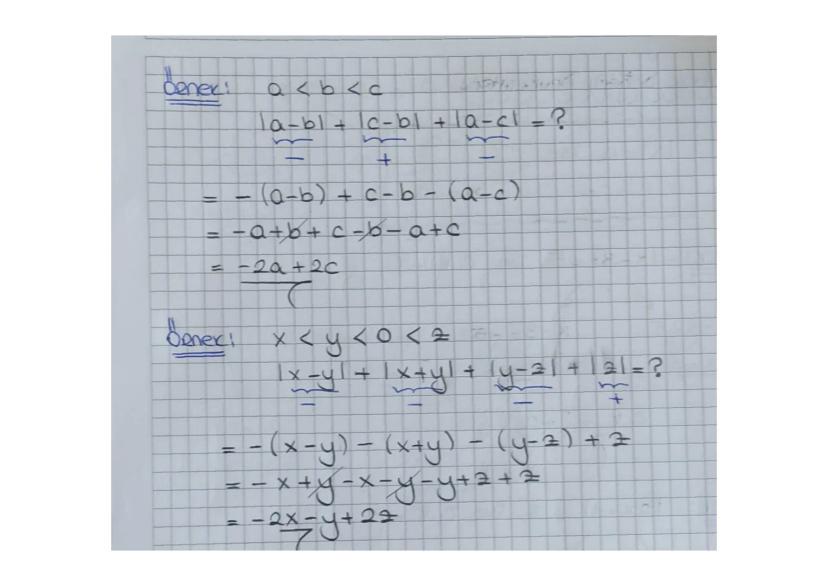 Örnek: a < b < c
|a-b| + |c-b| + |a-c| = ?
- + -
= -(a-b) + c-b - (a-c)
= -a+b+c-b-a+c
= -2a+2c
Örnek: x < y < 0 < z
|x-y| + |x+y| + |y-z| + |z| = ?
- - - +
= -(x-y) - (x+y) - (y-z) + z
= -x+y-x-y-y+z+z
= -2x-y+2z